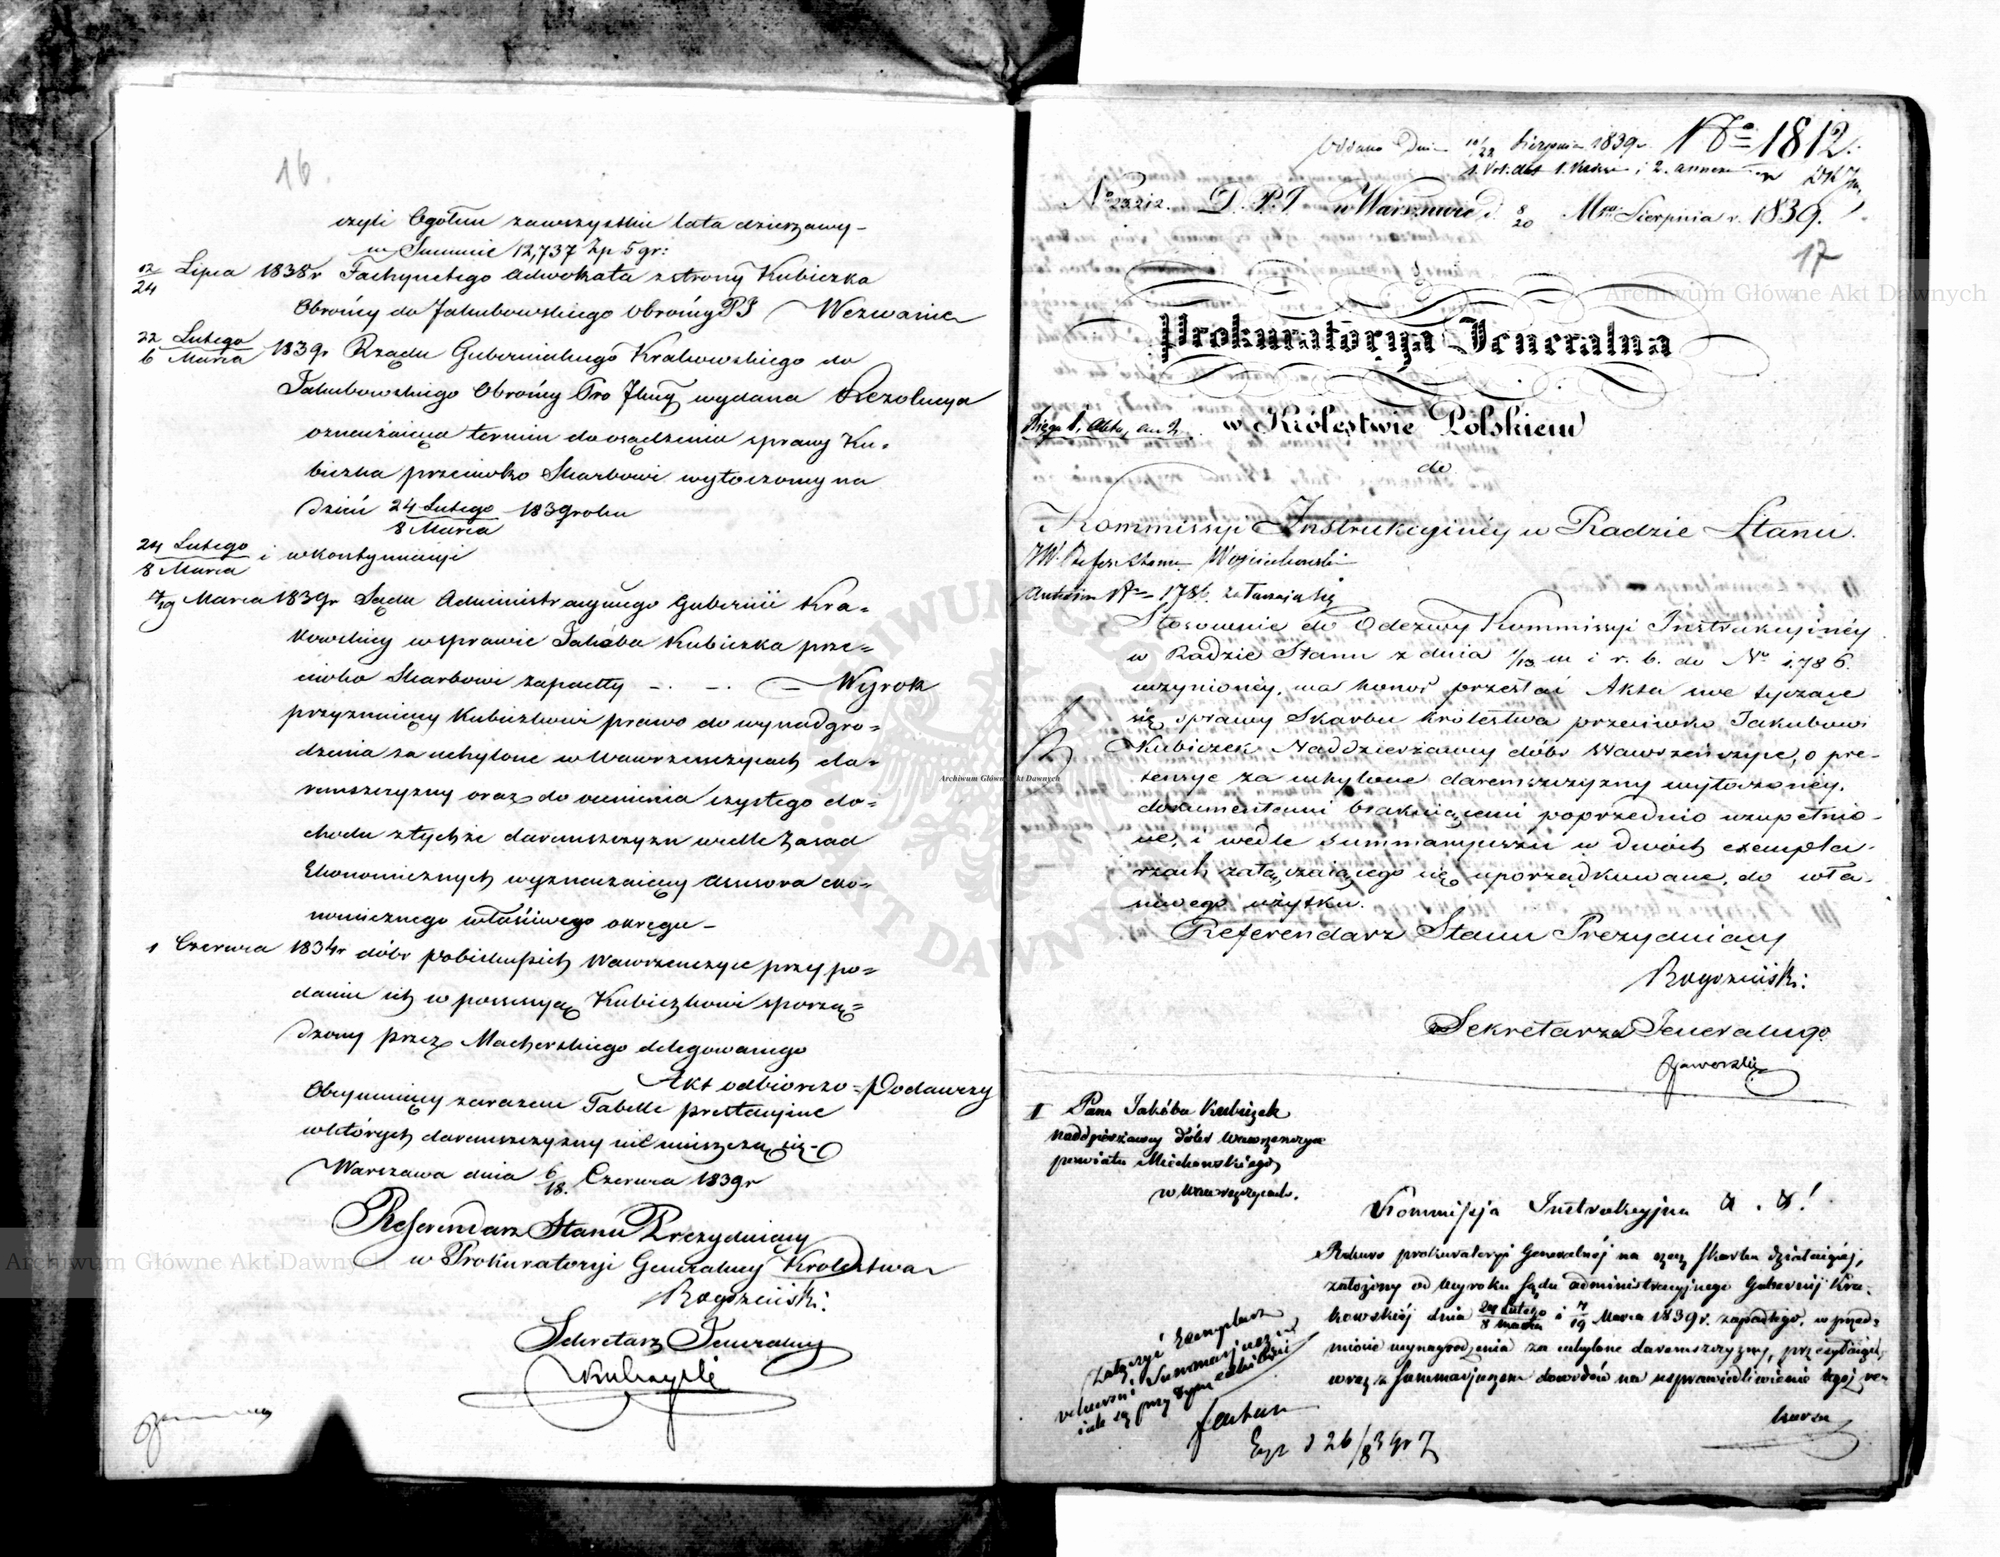 16.
czyli Ogółem zawszystkie lata dzierzawy
w Summie 12,737 Zp 5 gr:
12/24 Lipca 1838 r Adwokata z strony Kubiczka
Obrońcy do Jakubowskiego Obrońcy PJ Wezwanie
22 Lutego / 6 Marca 1839 r Rządu Gubernialnego Krakowskiego do
Jakubowskiego Obrońcy wydana Rezolucya
oznaczaiąca termin do osądzenia sprawy Ku-
biczka przeciwko Skarbowi wytoczoney na
dzień 24 Lutego / 8 Marca 1839 roku
24 Lutego / 8 Marca i w kontynuacyi
7/19 Marca 1839 r Sądu Administracyinego Gubernii Kra-
kowskiey w sprawie Jakóba Kubiczka prze-
ciwko Skarbowi zapadły Wyrok
przyznaiący Kubiczkowi prawo do wynadgro-
dzenia za uchylone w Wawrzenczycach da-
remszczyzny oraz do ocenienia czystego do-
chodu z tychże daremszczyzn wedle zasad
Ekonomicznych wyznaczaiący Assesora eko-
nomicznego właściwego okręgu
1 Czerwca 1834 r dóbr pobiskupich Wawrzenczyce przy po-
daniu ich w possessyą Kubiczkowi sporzą-
dzony przez Macherskiego delegowanego
Akt odbiorczo-Podawczy
Obeymuiący zarazem Tabelle prestacyine
w których daremszczyzny nie mieszczą się
Warszawa dnia 6/18. Czerwca 1839 r
Referendarz Stanu Prezyduiący
w Prokuratoryi Generalney Królestwa
Sekretarz Jeneralny
Oddano Dnia 10/22 Sierpnia 1839 r. No 1812.
No 22212. D. P. J. w Warszawie d. 8/20 Mca Sierpnia r. 1839.
17
Prokuratorya Jeneralna
w Królestwie Polskiem
do
Kommissyi Instrukcyiney w Radzie Stanu.
JW. Refer. Stanu Wojciechowski
No 1786. załączaią się
Stosownie do Odezwy Kommissyi Instrukcyiney
w Radzie Stanu z dnia 1/13 m i r. b. do No 1,786.
uczynioney, ma honor przesłać Akta swe tyczące
się sprawy Skarbu Królestwa przeciwko Jakubowi
Kubiczek Naddzierżawcy dóbr Wawrzeńczyce, o pre-
tensye za uchylone daremszczyzny wytoczoney,
dokumentami brakuiącemi poprzednio uzupełnio-
ne, i wedle summaryuszu w dwóch exempla-
rzach załączaiącego się uporządkowane, do wła-
snego użytku.
Referendarz Stanu Prezyduiący
Sekretarz Jeneralny
Jaworski
Pana Jakóba Kubiczek
naddzierżawcy dóbr Wawrzenczyce
powiatu Miechowskiego
w Wawrzenczycach.
Kommissja Instrukcyjna
Rekurs prokuratoryi Generalnéj na rzecz skarbu działaiącéj,
założony od wyroku sądu administracyjnego Gubernij Kra-
kowskiéj dnia 24 Lutego / 8 Marca i 7/19 Marca 1839 r. zapadłego, w przed-
miocie wynagrodzenia za uchylone daremszczyzny, przesyłaiąc
wraz z summarjuszem dowodów na usprawiedliwienie tegoż re-
kursu
Załączyć Exemplarz
Summarjusza
Exp d 26/8 39 r
Archiwum Główne Akt Dawnych
Archiwum Główne Akt Dawnych
Archiwum Główne Akt Dawnych